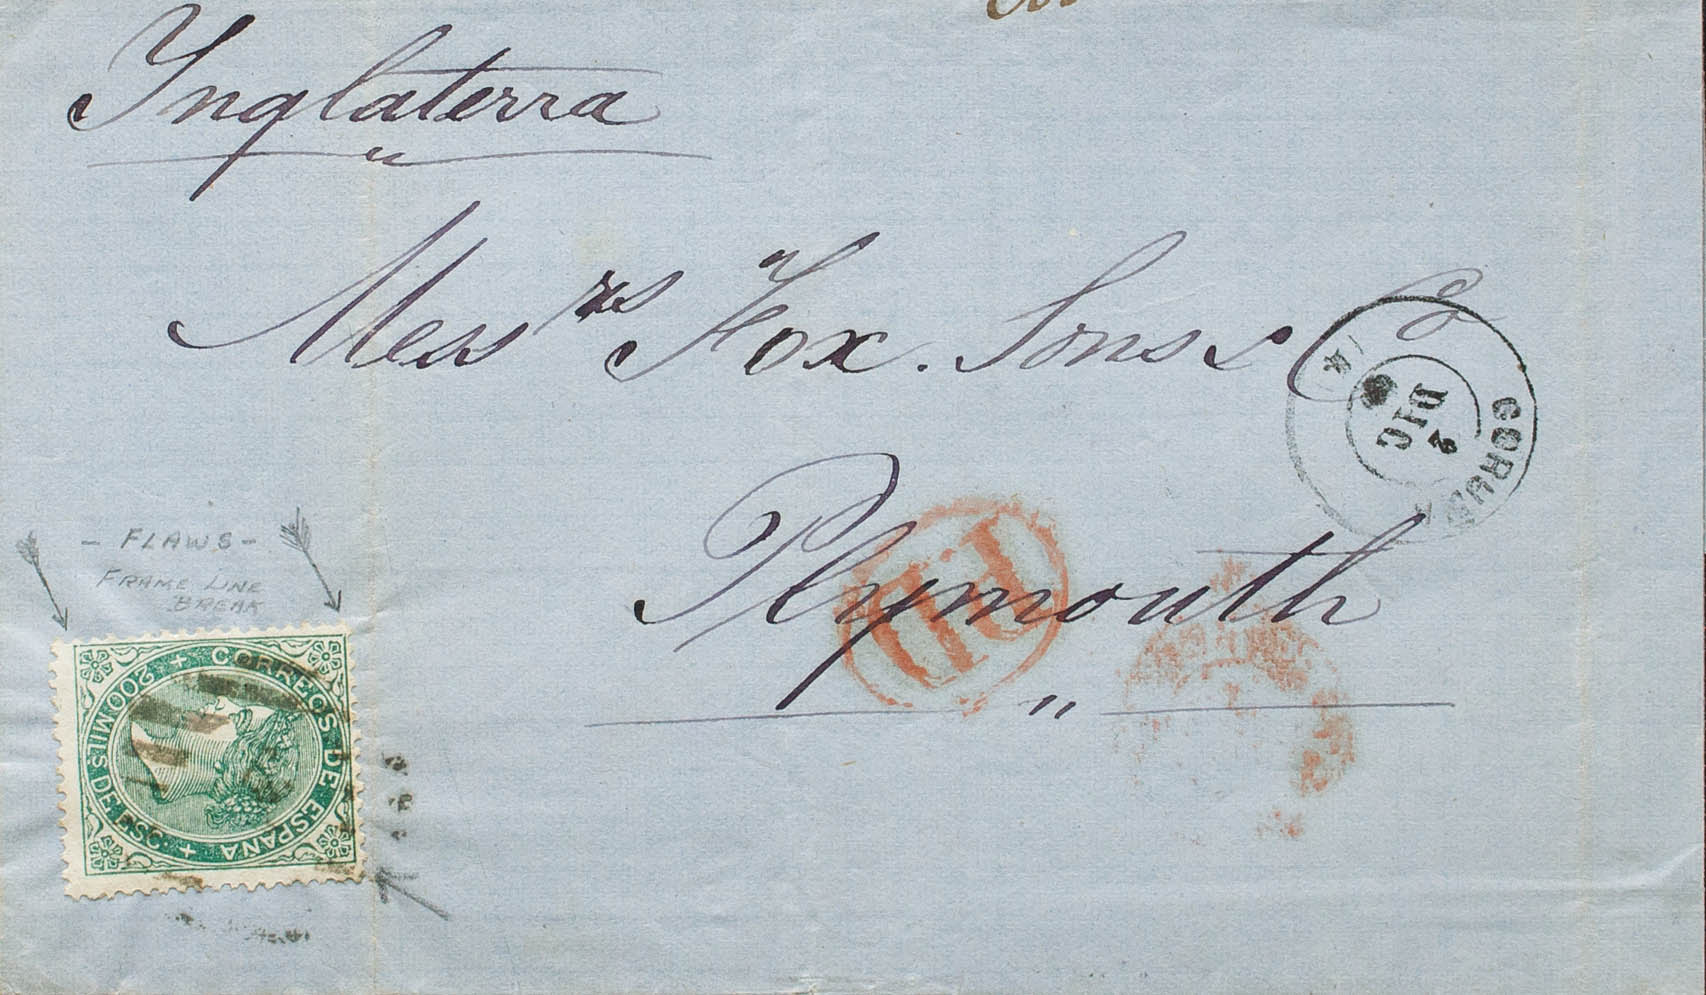 Inglaterra
Messrs Fox. Sons & Co
CORUÑA
2
DIC
Plymouth
PD
- FLAWS -
FRAME LINE
BREAK
CORREOS DE ESPAÑA
200 MILS DE ESC.